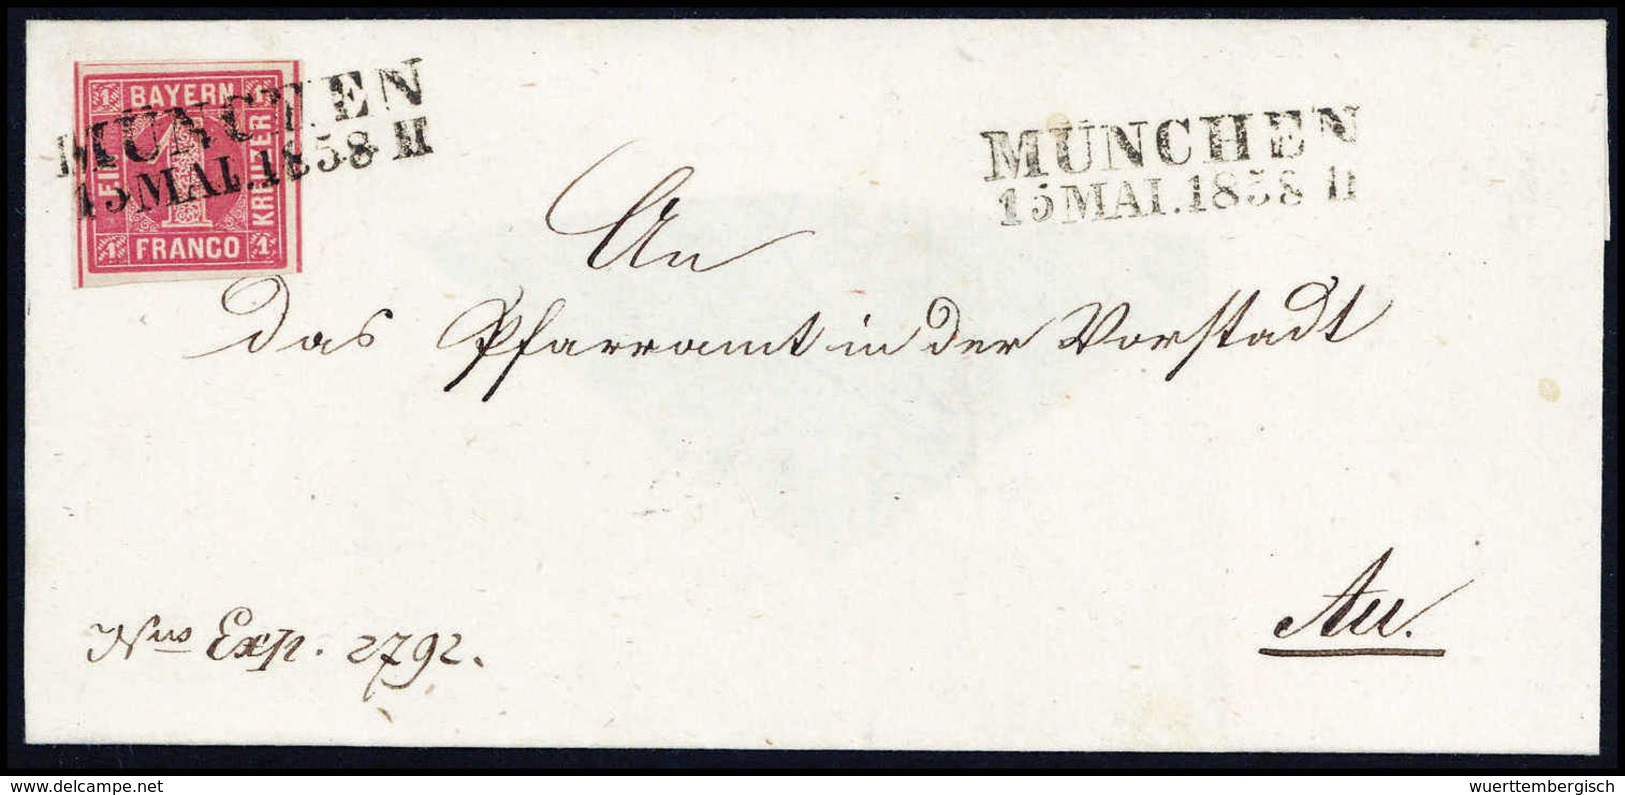 1 BAYERN 1
EIN
1
KREUZER
1 FRANCO 1
MÜNCHEN
15 MAI. 1858 II
MÜNCHEN
15 MAI. 1858 II
An
das Pfarramt in der Vorstadt
Au.
Nus Exp. 2792.
delcampe.net
wuerttembergisch